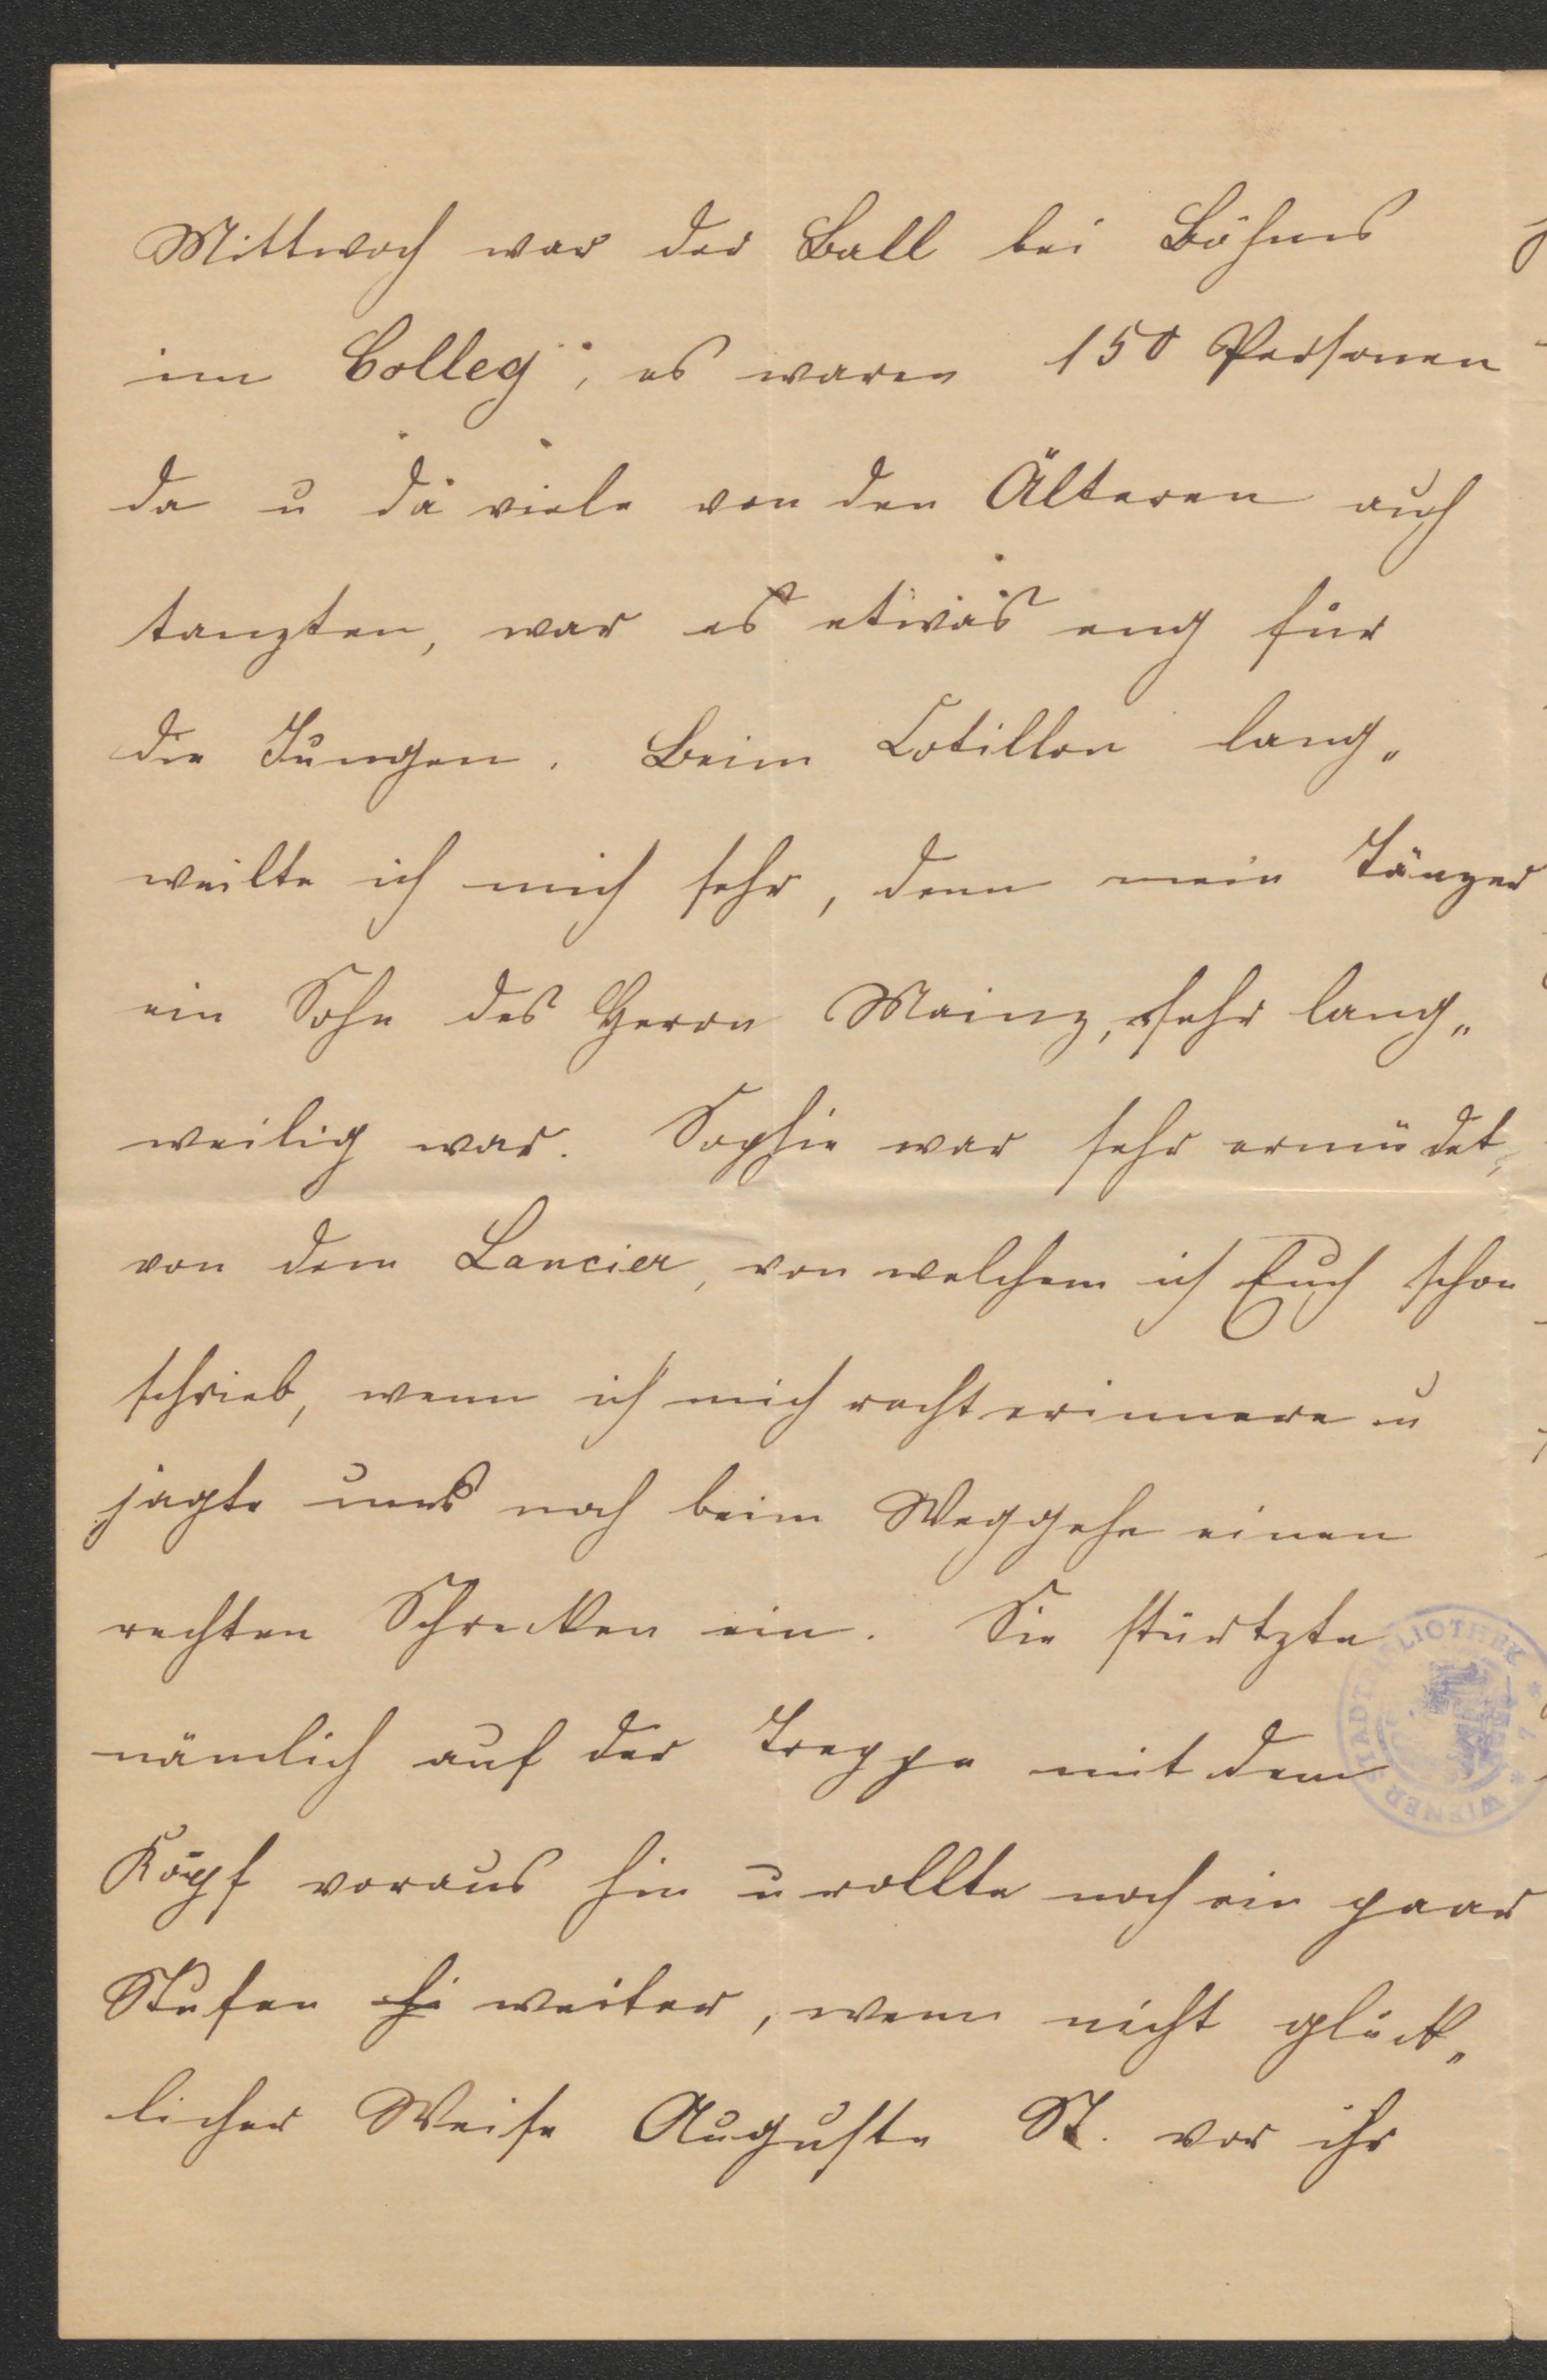 Mittwoch war der Ball bei Böhms
im Colleg; es waren 150 Personen
da u da viele von den Älteren auch
tanzten, war es etwas eng für
die Jungen. Beim Cotillon lang„
weilte ich mich sehr, denn mein Tänzer
ein Sohn des Herrn Mainz, sehr lang„
weilig war. Sophie war sehr ermüdet,
von dem Lancier, von welchem ich Euch schon
schrieb, wenn ich mich recht erinnere u
jagte uns noch beim Weggehe einen
rechten Schrecken ein. Sie stürtzte
nämlich auf der Treppe mit dem
Kopf voraus hin u rollte noch ein paar
Stufen hi weiter, wenn nicht glück„
licher Weise Auguste St. vor ihr
WIENER STADTBIBLIOTHEK